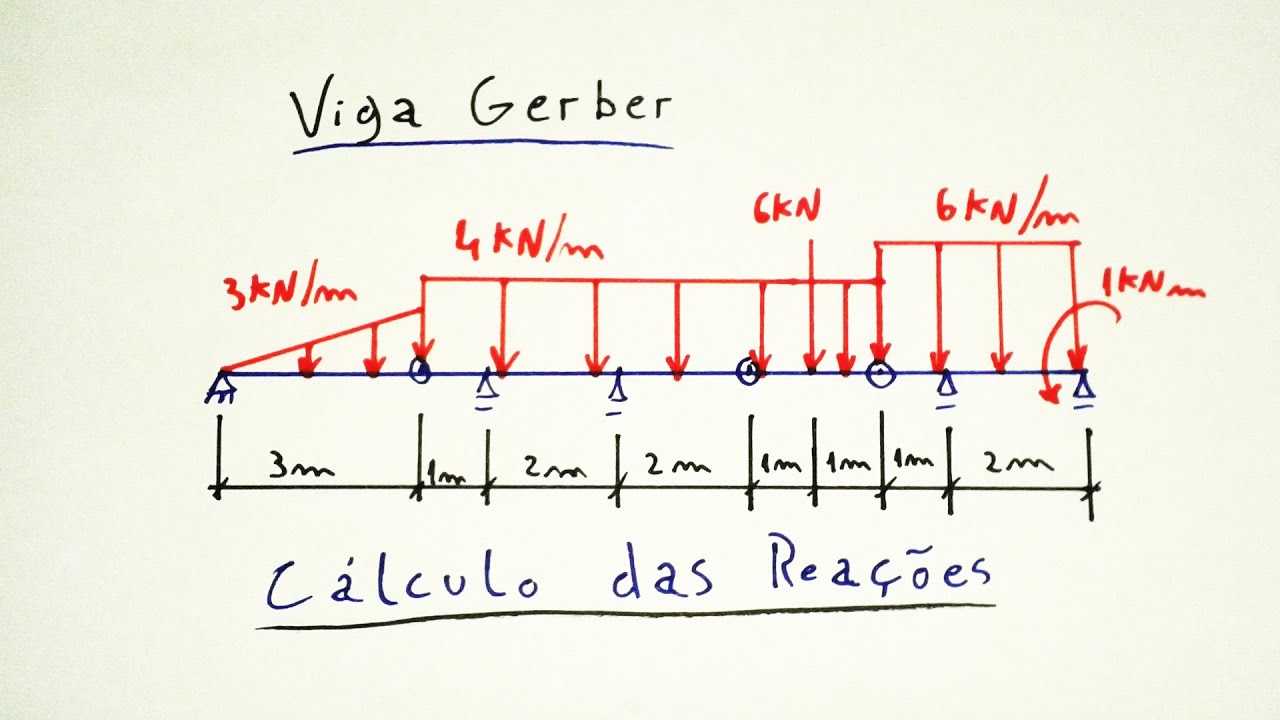 Viga Gerber
6KN
6KN/m
4KN/m
3KN/m
1KNm
3m 1m 2m 2m 1m 1m 1m 2m
Cálculo das Reações